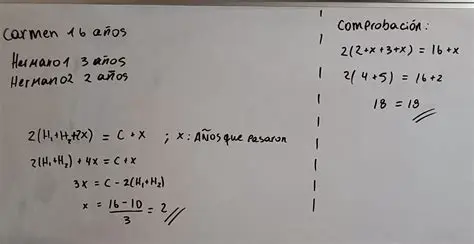 Carmen 16 años
Hermano1 3 años
Hermano2 2 años
2(H₁+H₂+2x) = C+x ; x: AÑOS que pasaron
2(H₁+H₂) + 4x = C+x
3x = C - 2(H₁+H₂)
x = 16-10 / 3 = 2 //
Comprobación:
2(2+x+3+x) = 16+x
2(4+5) = 16+2
18 = 18 //